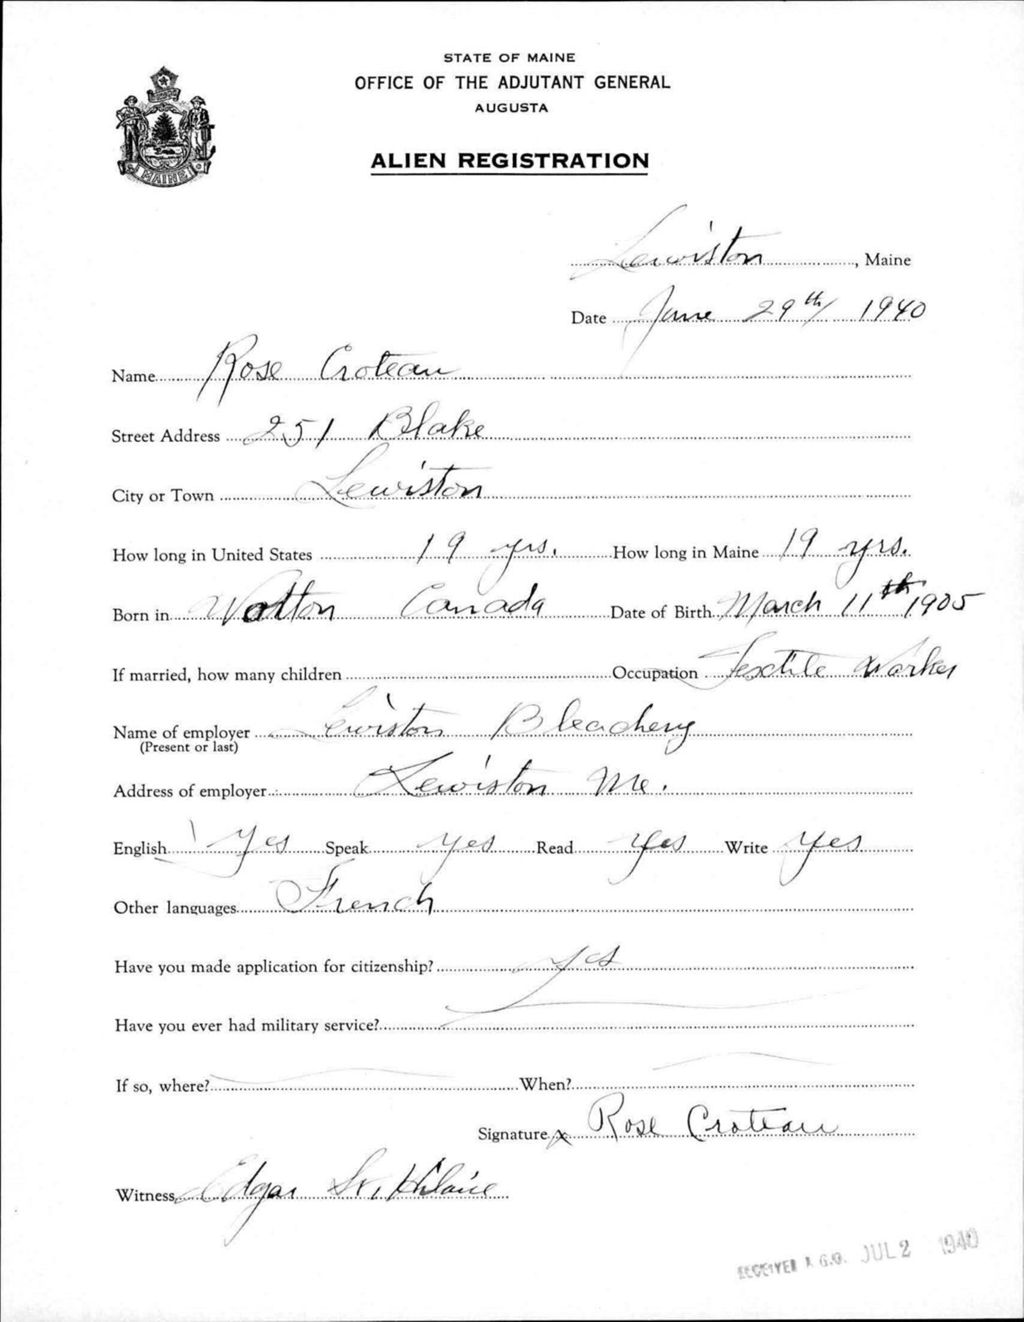 STATE OF MAINE
OFFICE OF THE ADJUTANT GENERAL
AUGUSTA
ALIEN REGISTRATION
MAINE
Lewiston, Maine
Date June 29th 1940
Name Rose Croteau
Street Address 251 Blake
City or Town Lewiston
How long in United States 19 yrs. How long in Maine 19 yrs.
Born in Wotton Canada Date of Birth March 11th 1905
If married, how many children Occupation Textile Worker
Name of employer Lewiston Bleachery
(Present or last)
Address of employer Lewiston Me.
English Yes Speak yes Read yes Write yes
Other languages French
Have you made application for citizenship? yes
Have you ever had military service?
If so, where? When?
Signature x Rose Croteau
Witness Edgar St. Hilaire
RECEIVED A.G.O. JUL 2 1940